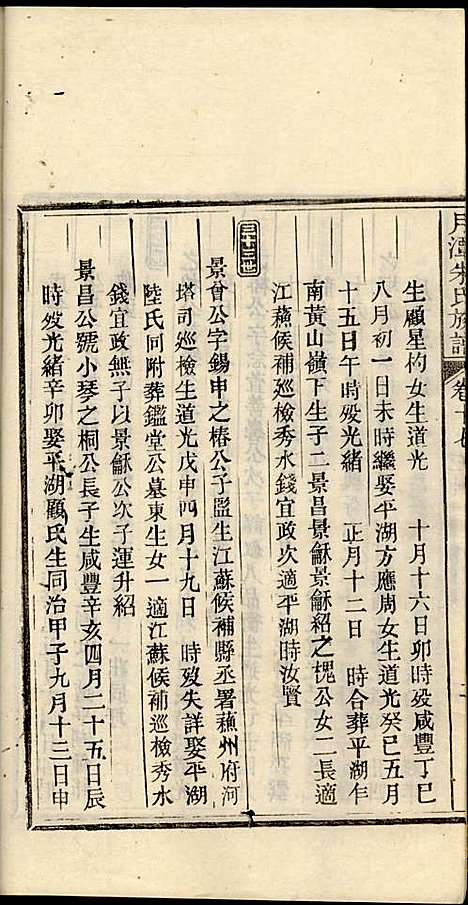 月潭朱氏族譜 卷十七
生顧星杓女生道光 十月十六日卯時歿咸豐丁巳
八月初一日未時繼娶平湖方應周女生道光癸巳五月
十五日午時歿光緒 正月十二日 時合葬平湖乍
南黃山嶺下生子二景昌景龢景龢紹之槐公女二長適
江蘇候補巡檢秀水錢宜政次適平湖時汝賢
三十三世
景曾公字錫申之椿公子監生江蘇候補縣丞署蘇州府河
塔司巡檢生道光戊申四月十九日 時歿失詳娶平湖
陸氏同附葬鑑堂公墓東生女一適江蘇候補巡檢秀水
錢宜政無子以景龢公次子運升紹
景昌公號小琴之桐公長子生咸豐辛亥四月二十五日辰
時歿光緒辛卯娶平湖顧氏生同治甲子九月十三日申